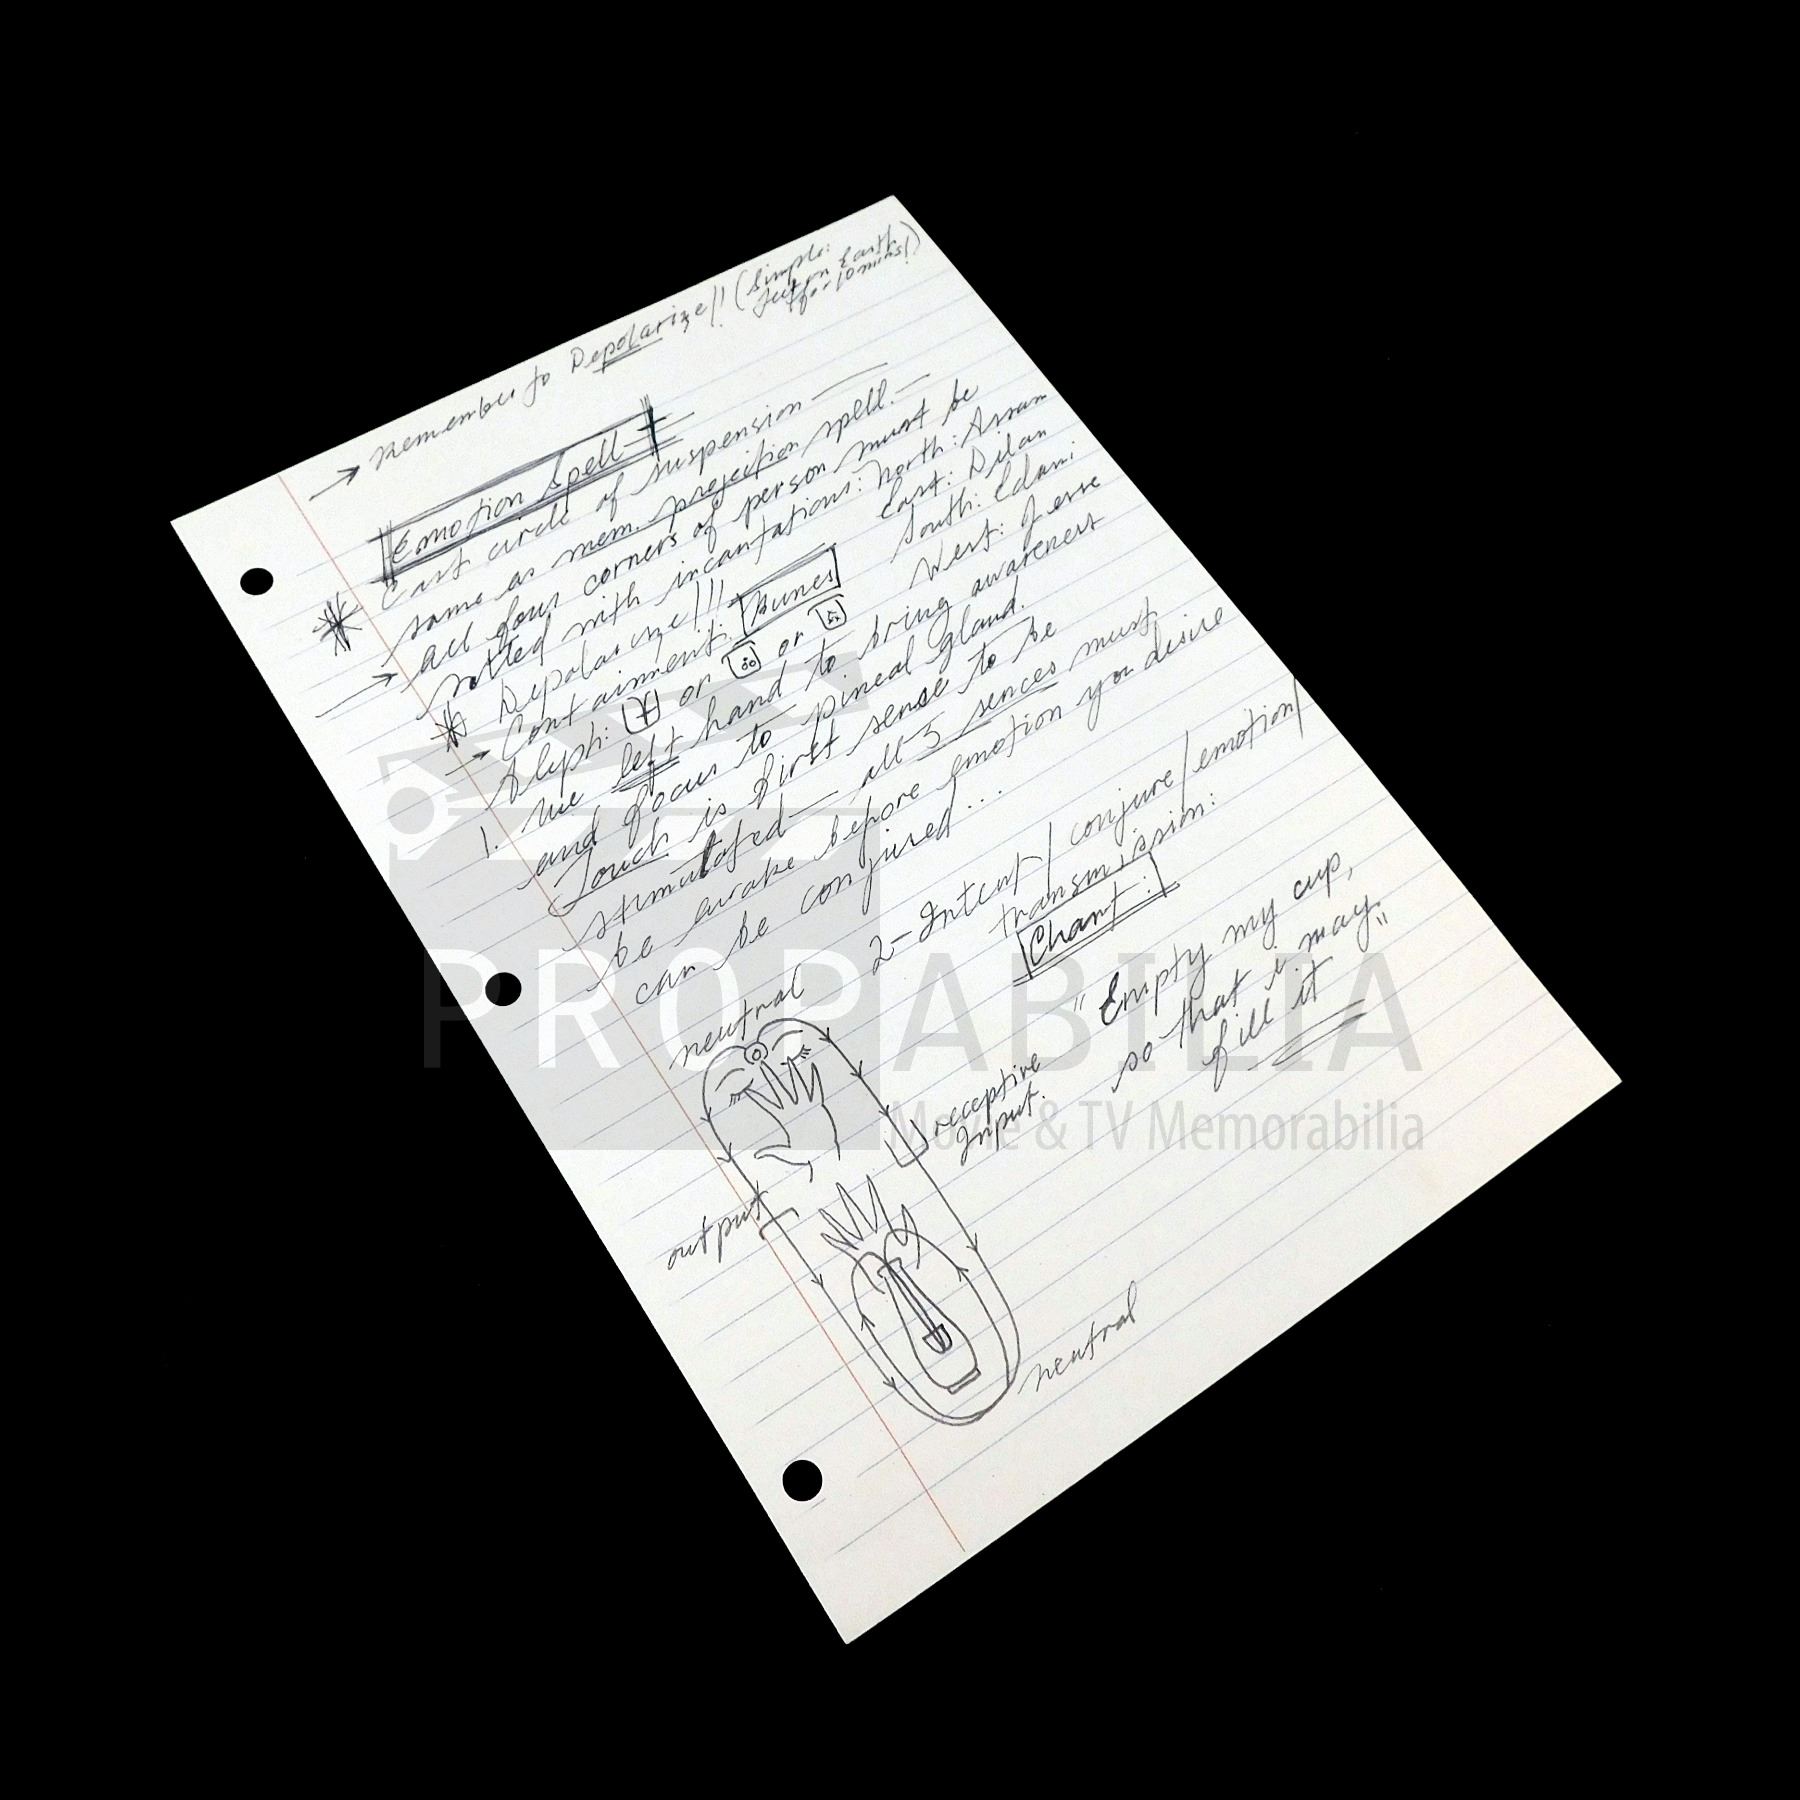 → Remember to Depolarize!! (Simple:
feet on Earth
for 10 mins!)
Emotion Spell
* Cast circle of suspension —
same as mem. projection spell. —
→ all four corners of person must be
noted with incantations: North: Assan
East: Dilan
South: Edani
West: Jesse
* Depolarize!!!
→ Containment: Runes
Glyph: or or
1. Use left hand to bring awareness
and focus to pineal gland.
Touch is first sense to be
stimulated — all 5 sences must
be awake before emotion you desire
can be conjured...
2- Intent / conjure / emotion /
transmission:
Chant:
"Empty my cup,
so that i may
fill it"
neutral
receptive
Input.
output
neutral
PROPABILIA
Movie & TV Memorabilia